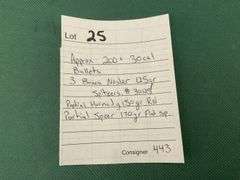 Lot 25
Approx 200+ 30 cal
Bullets
3 Boxes Nosler 125gr
Spitzers # 30
Partial Hornady 130gr RN
Partial Speer 130gr Flat SP
Consigner 443